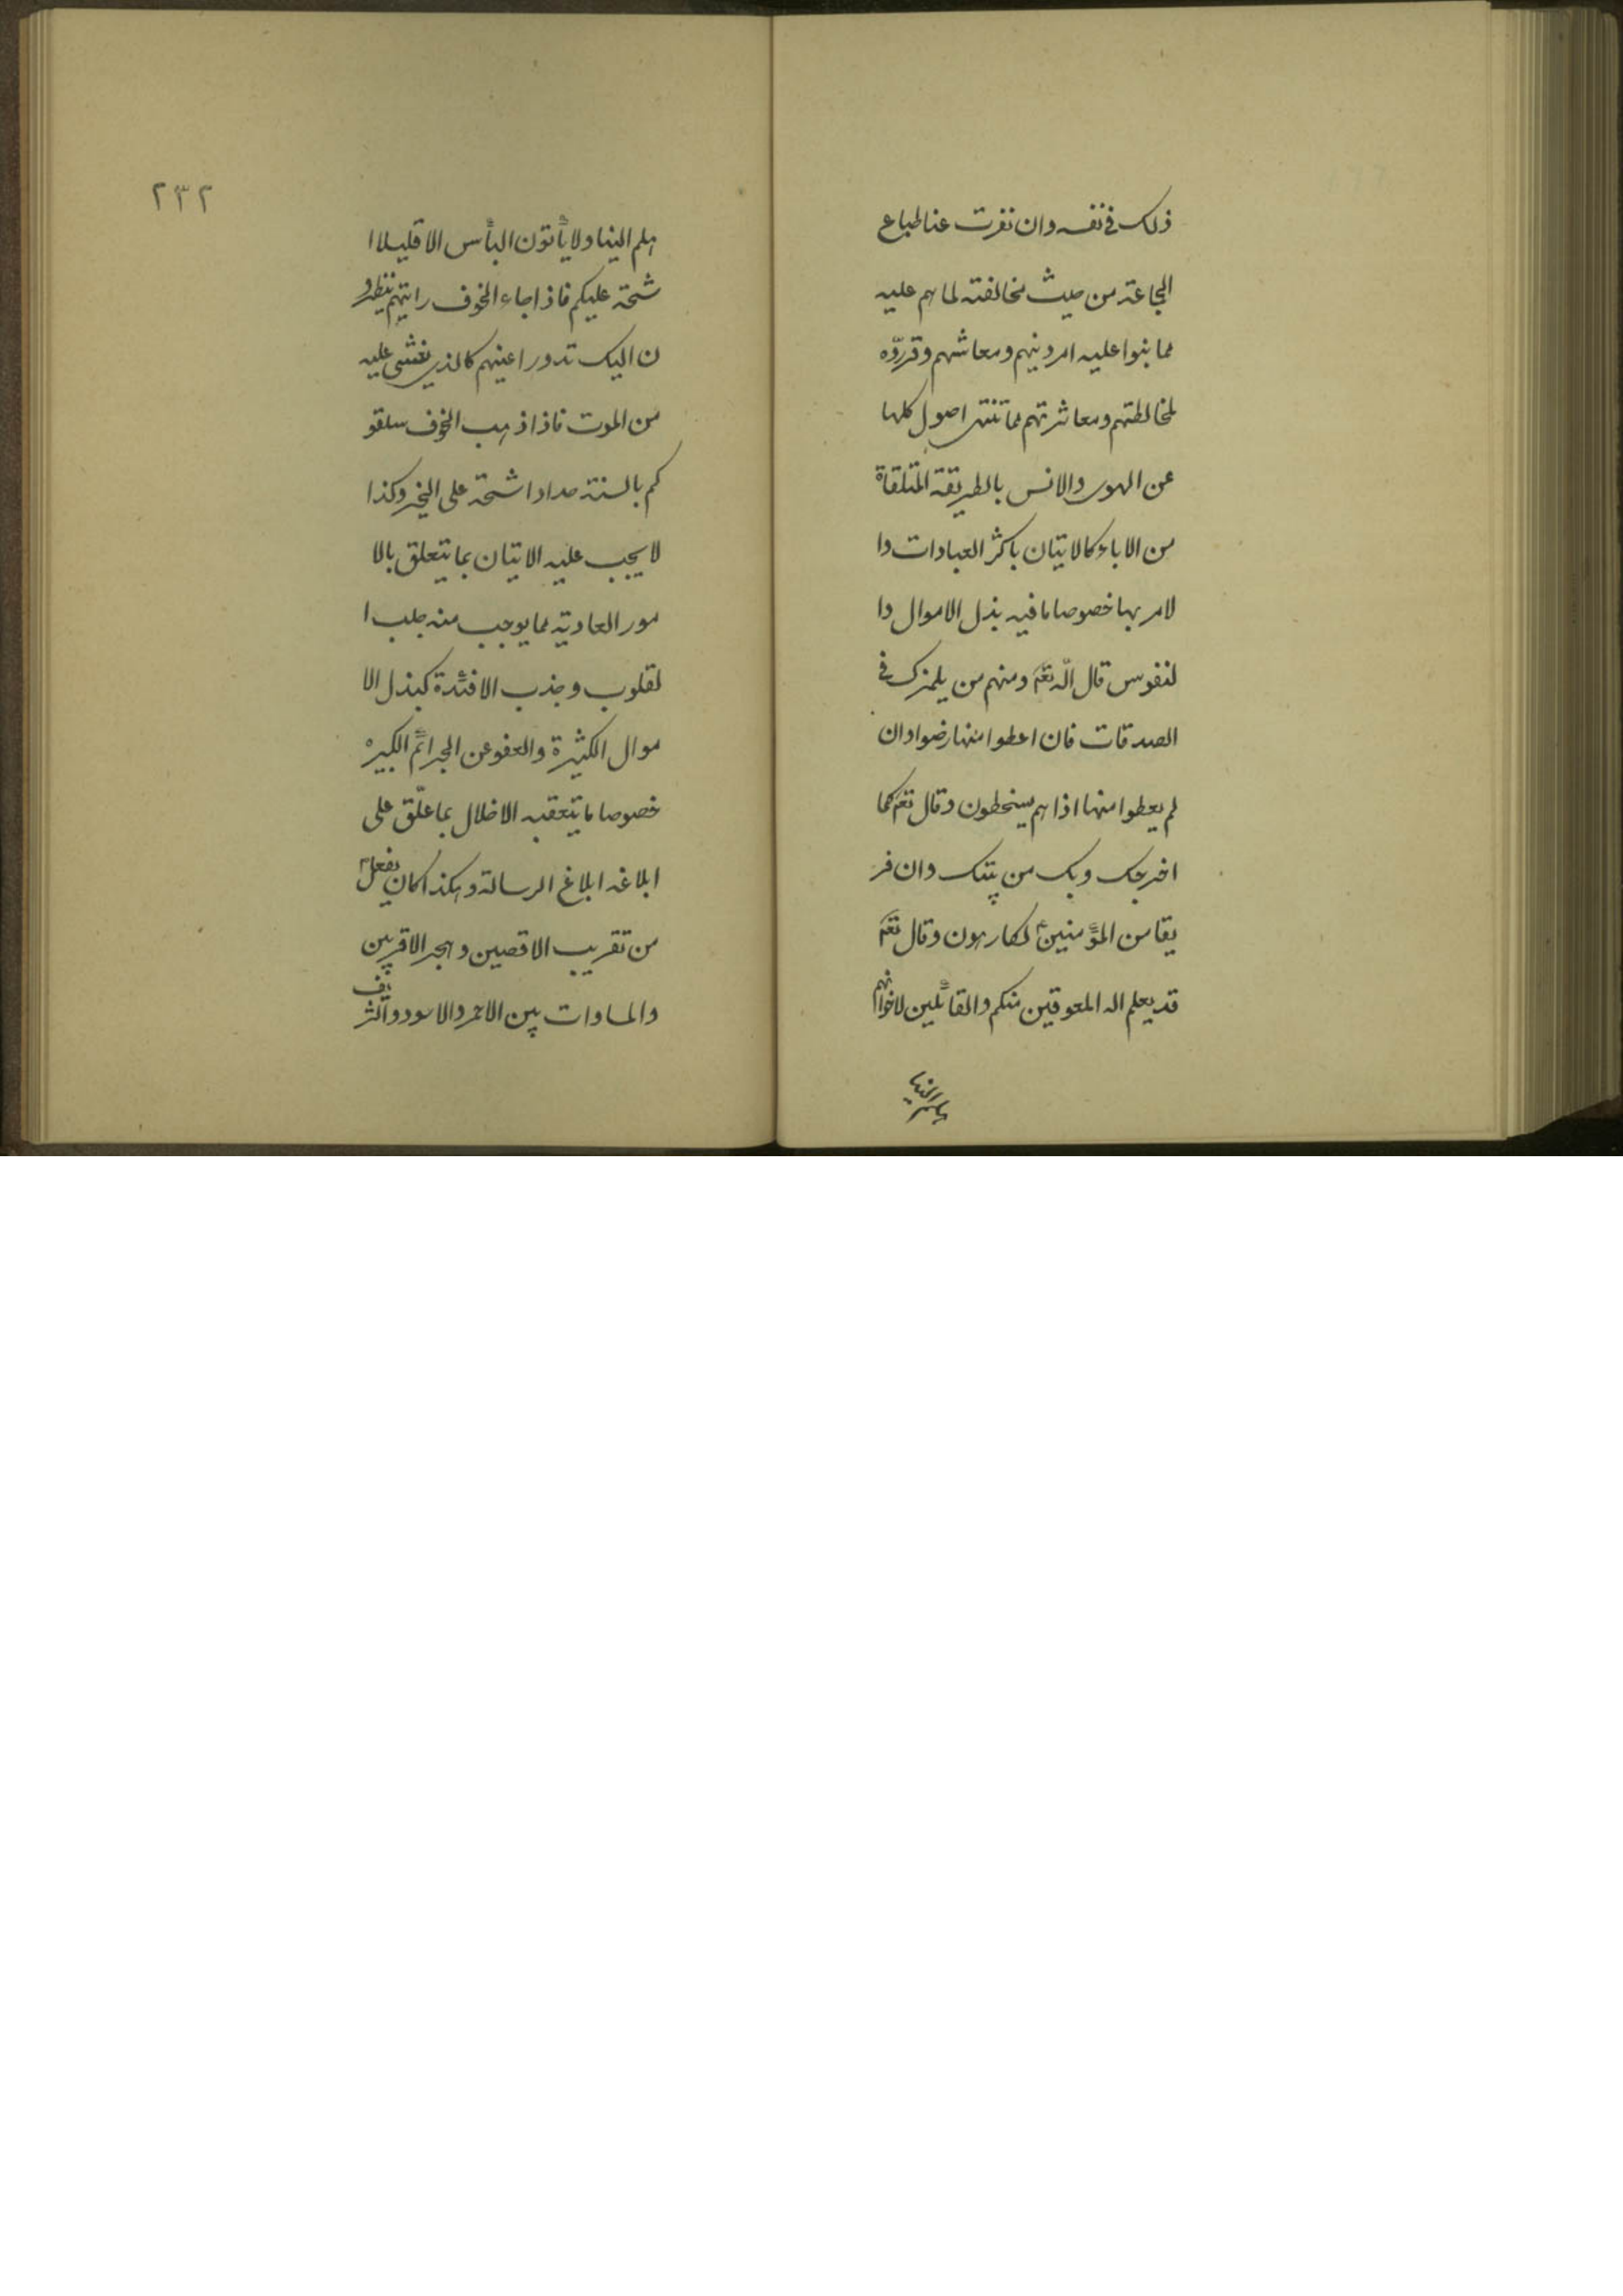 ذلک فی نفسه وان نفرت عنا طباع
الجماعته من حیث مخالفته لما هم علیه
مما بنوا علیه امر دینهم ومعاشهم وقرروه
لمخالطتهم ومعاشرتهم مما تنتهی اصول کلها
عن الهوی والانس بالطریقة المتلقاة
من الاباء کالاتیان باکثر العبادات وا
لامر بها خصوصا ما فیه بذل الاموال وا
لنفوس قال اللّه تعم ومنهم من یلمزک فی
الصدقات فان اعطوا منها رضوا وان
لم یعطوا منها اذا هم یسخطون وقال تعم کما
اخرجک ربک من بیتک وان فر
یقا من المؤمنین لکارهون وقال تعم
قد یعلم اله المعوقین منکم والقائلین لاخوانهم
هلم الینا
۲۳۲
هلم الینا ولا یأتون البأس الا قلیلا ا
شحة علیکم فاذا جاء الخوف رایتهم ینظرو
ن الیک تدور اعینهم کالذی یغشی علیه
من الموت فاذا ذهب الخوف سلقو
کم بالسنة حداد اشحة علی الخیر وکذا
لا یجب علیه الاتیان بما یتعلق بالا
مور العادیة مما یوجب منه جلب ا
لقلوب وجذب الافئدة کبذل الا
موال الکثیرة والعفو عن الجرائم الکبیره
خصوصا ما یتعقبه الاخلال بما علّق علی
ابلاغه ابلاغ الرسالة وهکذا کان یفعل
من تقریب الاقصین وهجر الاقربین
والمساوات بین الاحمر والاسود